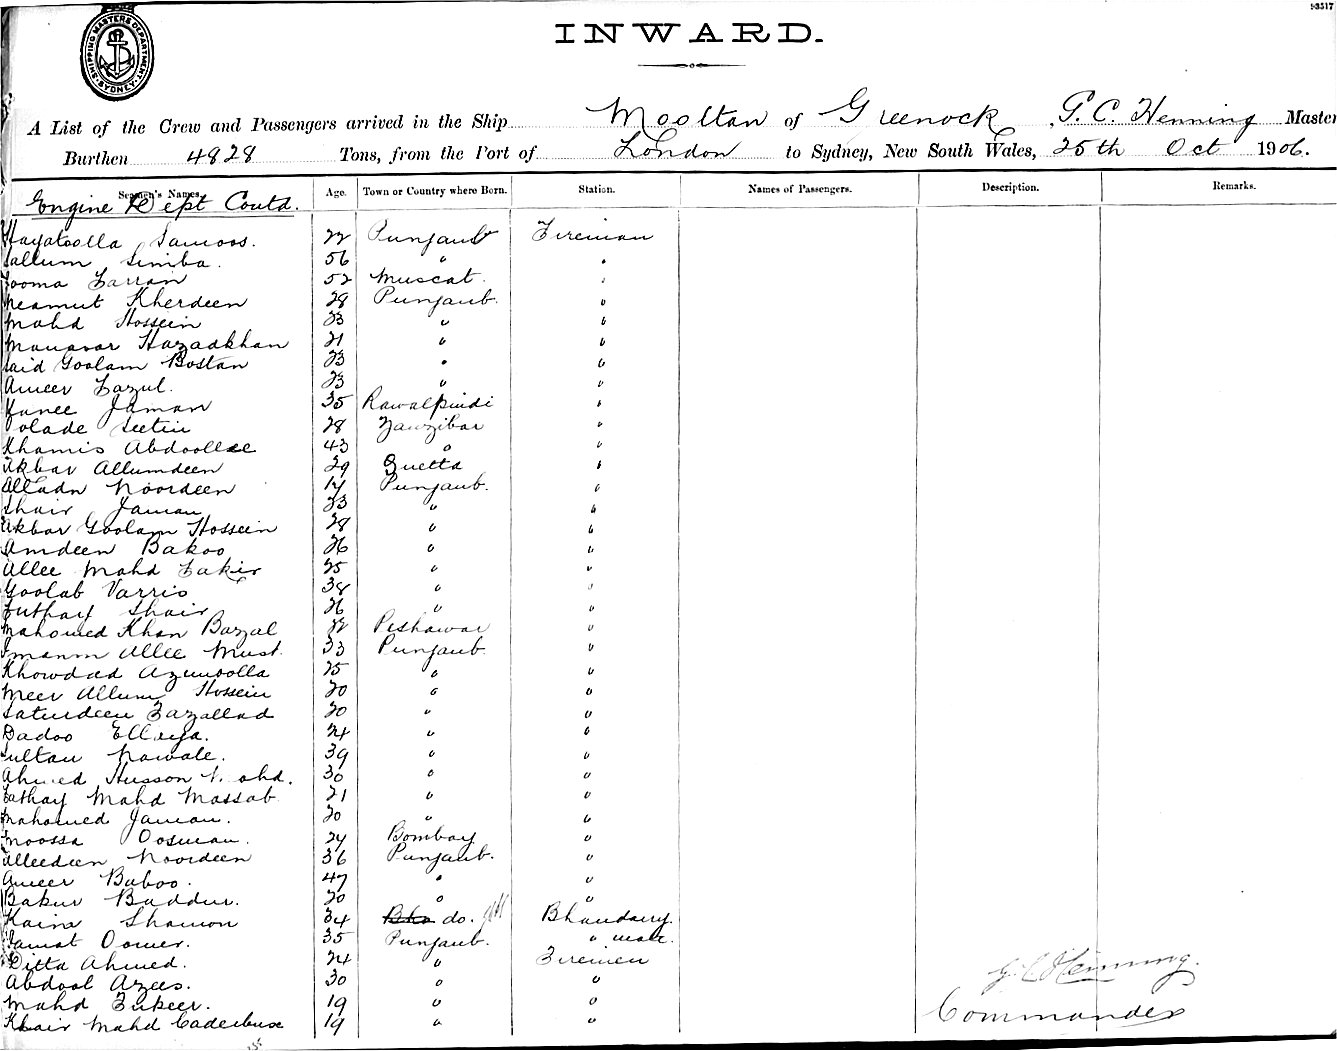 93517
SHIPPING MASTERS DEPARTMENT SYDNEY
INWARD.
A List of the Crew and Passengers arrived in the Ship Mooltan of Greenock, Master
Burthen 4828 Tons, from the Port of London to Sydney, New South Wales, 25th Oct 1906.
Seamen's Names. Age. Town or Country where Born. Station. Names of Passengers. Description. Remarks.
Engine Dept Contd.
Hayatoolla 22 Punjaub Fireman
Sallum Simba. 56 " "
Jooma Farran 52 Muscat. "
Kherdeen 28 Punjaub. "
Mahd Hossein 23 " "
Hazadkhan 21 " "
Said Goolam Bostan 23 " "
Ameer Fazul. 23 " "
Jaman 35 Rawalpindi "
28 Zanzibar "
Khamis 43 " "
Akbar Allumdeen 29 Quetta "
Noordeen Punjaub. "
Shair Jaman 23 " "
Akbar Goolam Hossein 28 " "
Amdeen Bakoo 26 " "
Allee Mahd Fakir 25 " "
Goolab Varris 38 " "
Futhay Shair 26 " "
Mahomed Khan Bazal 22 Peshawar "
Allee Must. 33 Punjaub. "
Khowdad Azumoolla 25 " "
Meer Allum Hossein 20 " "
Fazallad 20 " "
Dadoo 24 " "
Sultan Nawale. 39 " "
Ahmed Husson 30 " "
Fathay Mahd Massab 21 " "
Mahomed Jaman. 20 " "
Moossa Oosman. 24 Bombay "
Alleedeen Noordeen 36 Punjaub. "
Ameer Baboo. 47 " "
Bakur Baddur. 20 " "
Shamon 34 do. Bhandarry.
Oomer. 35 Punjaub. " mate.
Ditta Ahmed. 24 " Firemen
Abdool Azees. 30 " "
Mahd Fukeer. 19 " "
Khair Mahd Caderbuse 19 " "
Henning.
Commander